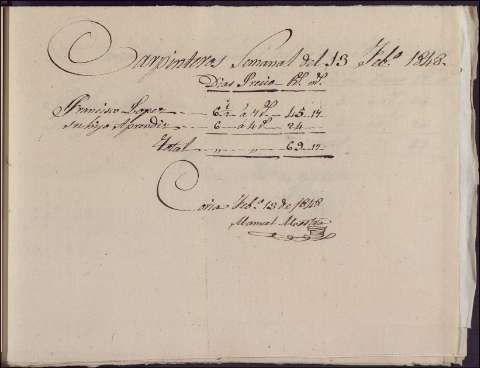 Carpinteros Semanal del 13 Feb.o 1848.
Dias Precio R.s m.s
Francisco Lopez 6 1/2 á 7 r.s 45 17
Su hijo Aprendiz 6 á 4 r.s 24
Total " " 69 17
Coria Feb.o 13 de 1848
Manuel